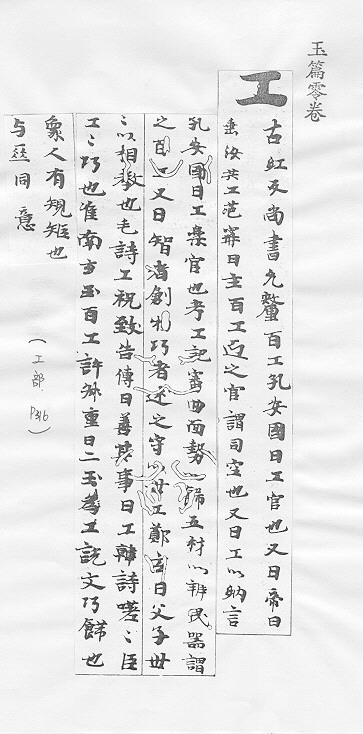 玉篇零卷
工
古紅反尚書允釐百工孔安國曰工官也又曰帝曰
垂汝共工范甯曰主百工之官謂司空也又曰工以納言
孔安國曰工樂官也考工記審曲面勢飾五材以辨民器謂
之百工又曰智者創物巧者述之守世工鄭玄曰父子世
以相教也毛詩工祝致告傳曰善其事曰工韓詩嗟嗟臣
工工巧也淮南玄玉百工許叔重曰二玉為工說文巧飾也
象人有規矩也
与巫同意
(工部 P316)